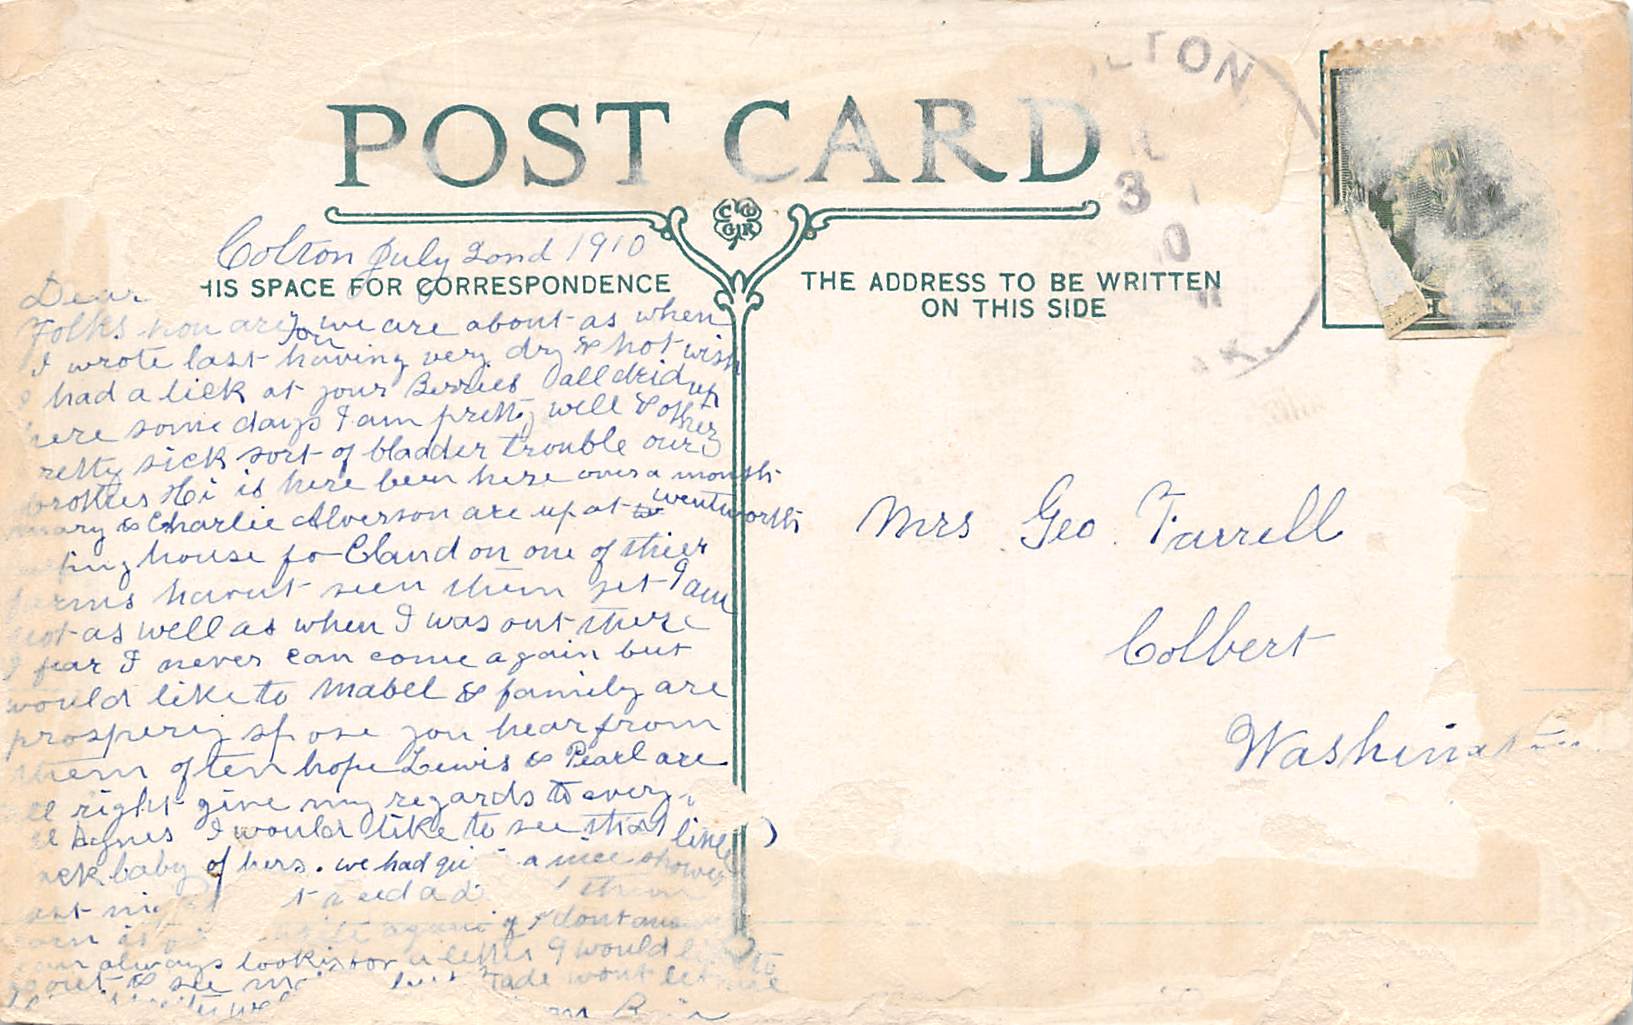 POST CARD
Colton July 22nd 1910
HIS SPACE FOR CORRESPONDENCE
THE ADDRESS TO BE WRITTEN
ON THIS SIDE
Dear
Folks how are you we are about as when
I wrote last having very dry & hot wish
I had a lick at your Berries all dried up
here some days I am pretty well & other
retty sick sort of bladder trouble our
brother Hi is here been here over a month
mary & Charlie Alverson are up at wentworth
house fo Claud on one of thier
farms havnt seen them yet I am
not as well as when I was out there
I fear I never can come again but
would like to Mabel & family are
prospering spose you hear from
them often hope Lewis & Pearl are
ll right give my regards to every
ll Agnes I would like to see that little
baby of hers. we had a nice shower
ast
again if I dont answer
always looking for a letter I would like to
out & see but Tade wont let me
Mrs Geo. Farrell
Colbert
Washington
LTON
3